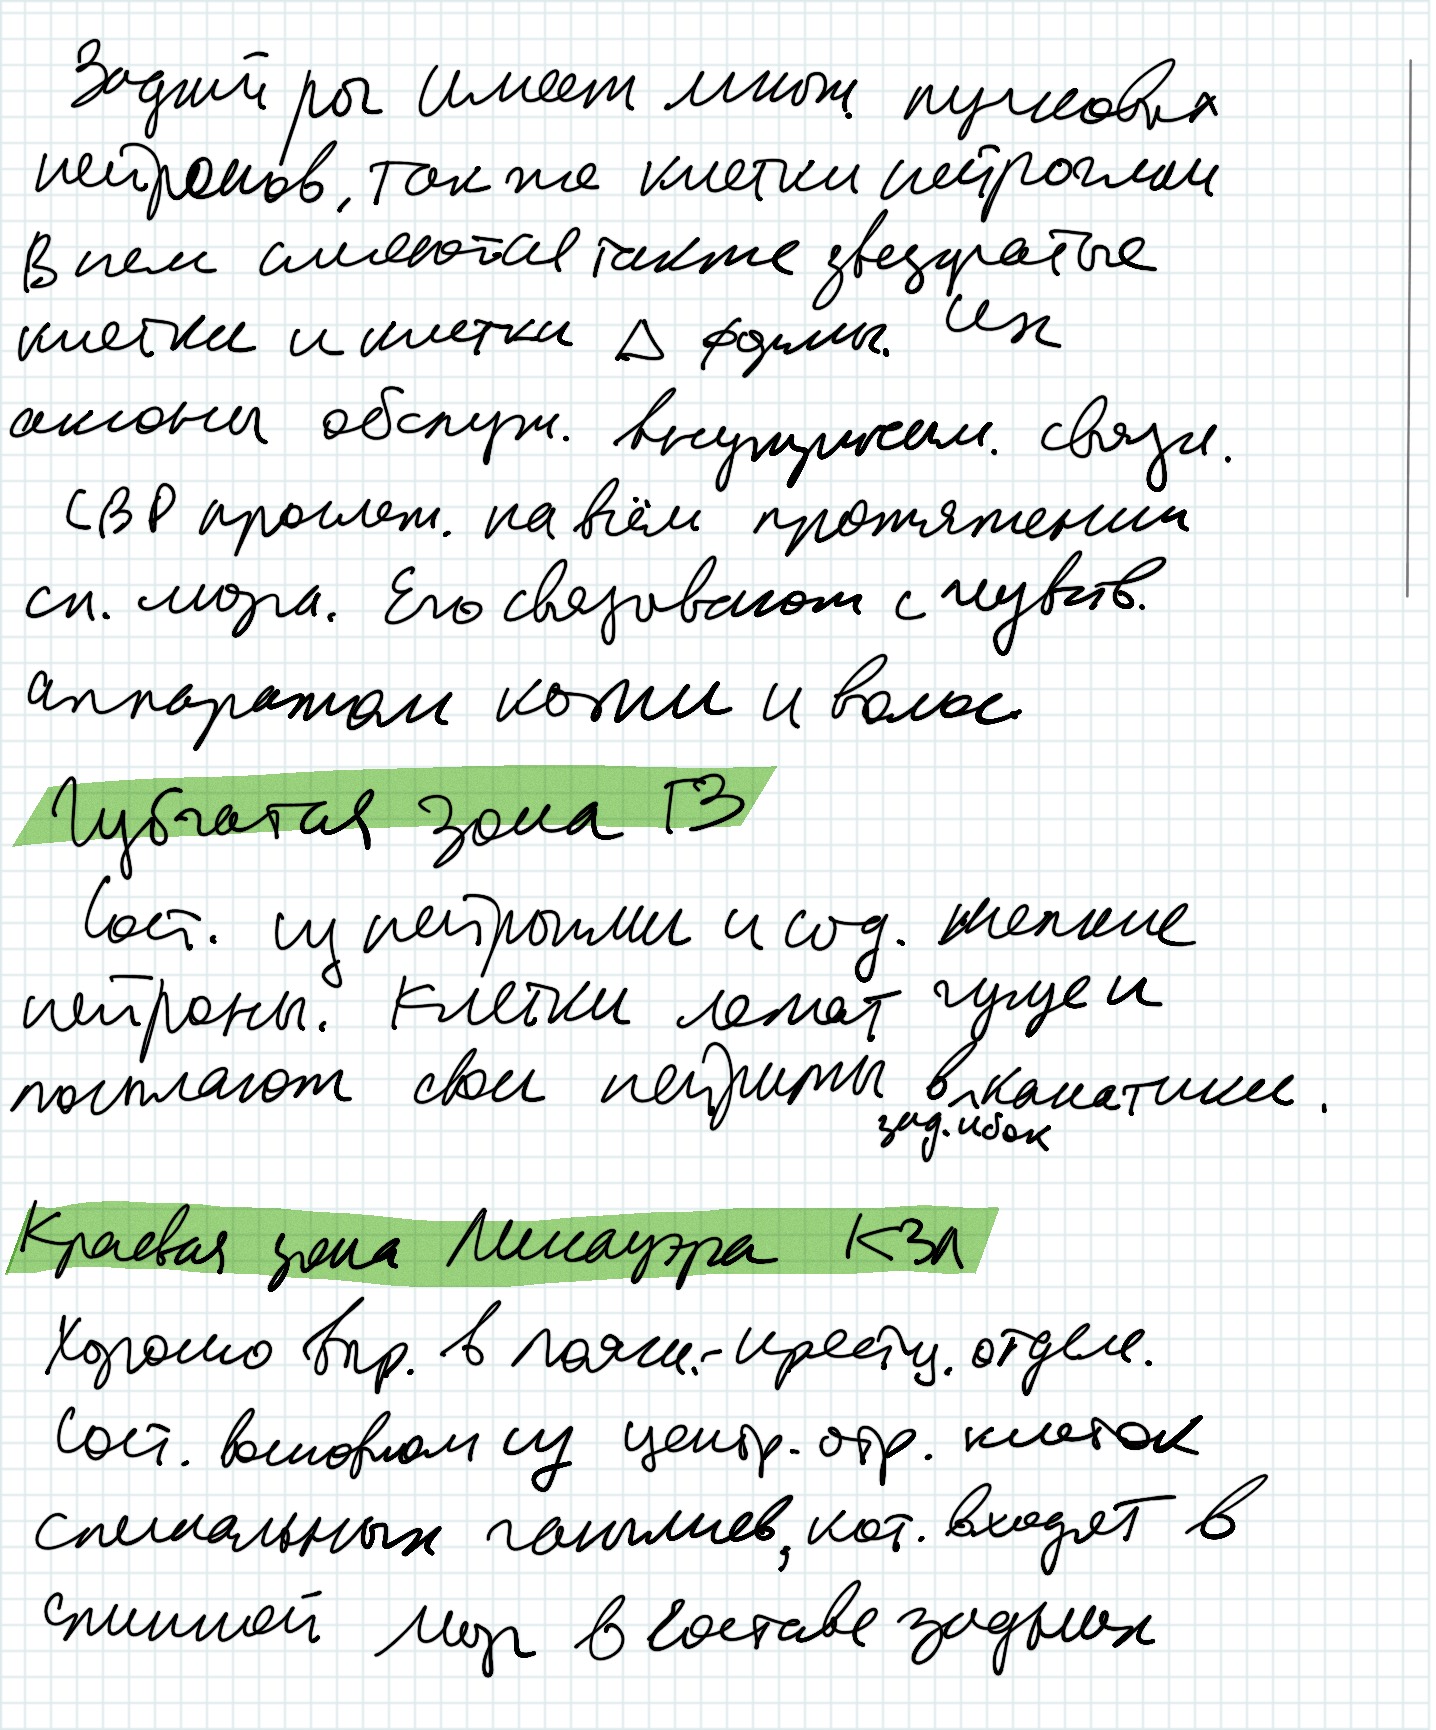 Задний рог имеет множ. пучковых
нейронов, также клетки нейроглии
В нем имеются также звездчатые
клетки и клетки Δ формы. Их
аксоны обслуж. внутрисегм. связи.
СВР прослеж. на всём протяжении
сп. мозга. Его связывают с чувств.
аппаратом кожи и волос.
Губчатая зона ГЗ
Сост. из нейроглии и сод. мелкие
нейроны. Клетки лежат гуще и
посылают свои нейриты в канатики.
зад. и бок
Краевая зона Лиссауэра КЗЛ
Хорошо выр. в поясн.-крестц. отделе.
Сост. в основном из центр. отр. клеток
спинальных ганглиев, кот. входят в
спинной мозг в составе задних